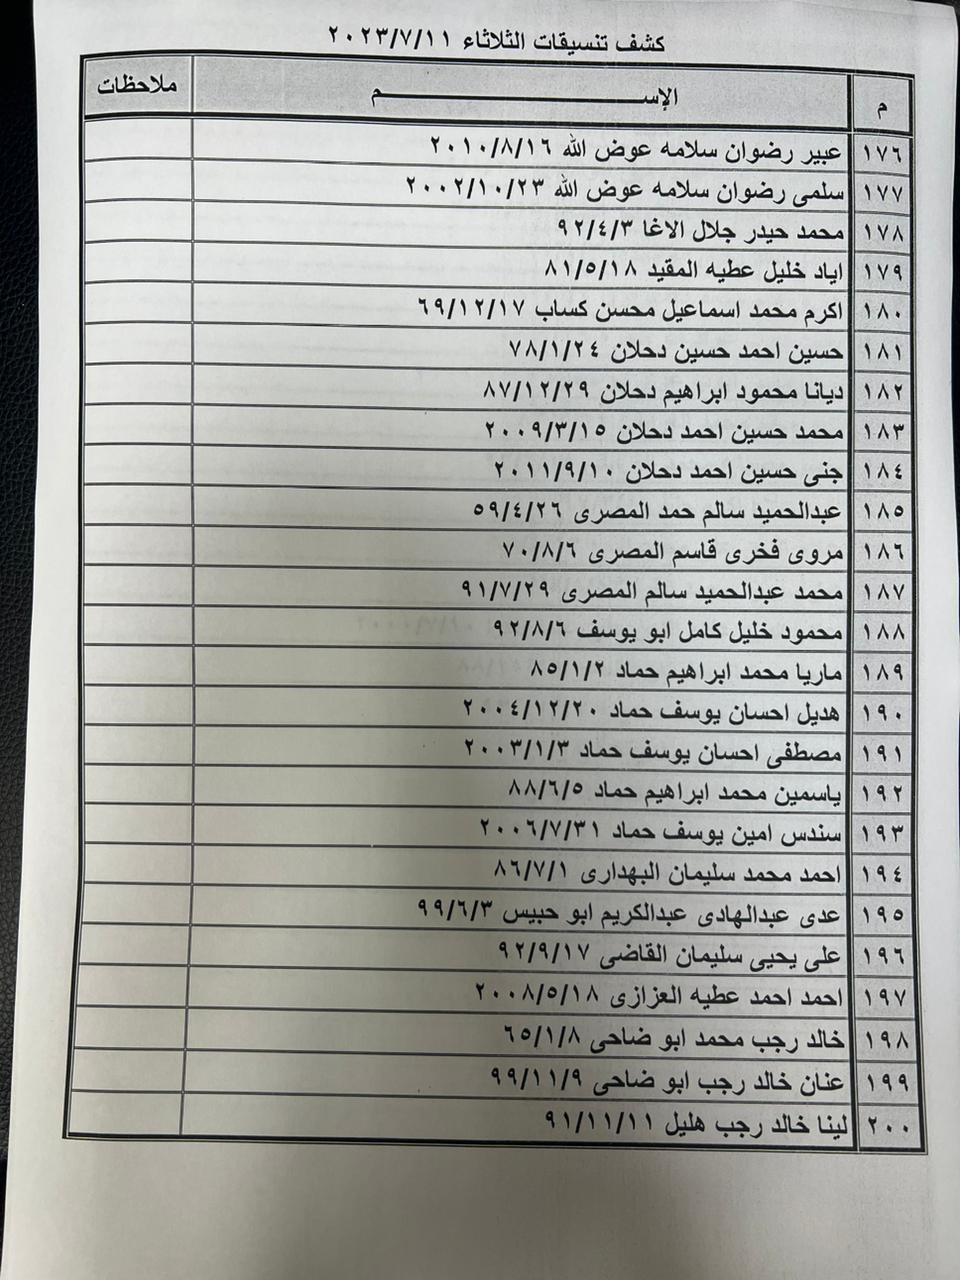 كشف تنسيقات الثلاثاء ٢٠٢٣/٧/١١
م الإســـــــــــــــــــــم ملاحظات
١٧٦ عبير رضوان سلامه عوض الله ٢٠١٠/٨/١٦
١٧٧ سلمى رضوان سلامه عوض الله ٢٠٠٢/١٠/٢٣
١٧٨ محمد حيدر جلال الاغا ٩٢/٤/٣
١٧٩ اياد خليل عطيه المقيد ٨١/٥/١٨
١٨٠ اكرم محمد اسماعيل محسن كساب ٦٩/١٢/١٧
١٨١ حسين احمد حسين دحلان ٧٨/١/٢٤
١٨٢ ديانا محمود ابراهيم دحلان ٨٧/١٢/٢٩
١٨٣ محمد حسين احمد دحلان ٢٠٠٩/٣/١٥
١٨٤ جنى حسين احمد دحلان ٢٠١١/٩/١٠
١٨٥ عبدالحميد سالم حمد المصرى ٥٩/٤/٢٦
١٨٦ مروى فخرى قاسم المصرى ٧٠/٨/٦
١٨٧ محمد عبدالحميد سالم المصرى ٩١/٧/٢٩
١٨٨ محمود خليل كامل ابو يوسف ٩٢/٨/٦
١٨٩ ماريا محمد ابراهيم حماد ٨٥/١/٢
١٩٠ هديل احسان يوسف حماد ٢٠٠٤/١٢/٢٠
١٩١ مصطفى احسان يوسف حماد ٢٠٠٣/١/٣
١٩٢ ياسمين محمد ابراهيم حماد ٨٨/٦/٥
١٩٣ سندس امين يوسف حماد ٢٠٠٦/٧/٣١
١٩٤ احمد محمد سليمان البهدارى ٨٦/٧/١
١٩٥ عدى عبدالهادى عبدالكريم ابو حبيس ٩٩/٦/٣
١٩٦ على يحيى سليمان القاضى ٩٢/٩/١٧
١٩٧ احمد احمد عطيه العزازى ٢٠٠٨/٥/١٨
١٩٨ خالد رجب محمد ابو ضاحى ٦٥/١/٨
١٩٩ عنان خالد رجب ابو ضاحى ٩٩/١١/٩
٢٠٠ لينا خالد رجب هليل ٩١/١١/١١